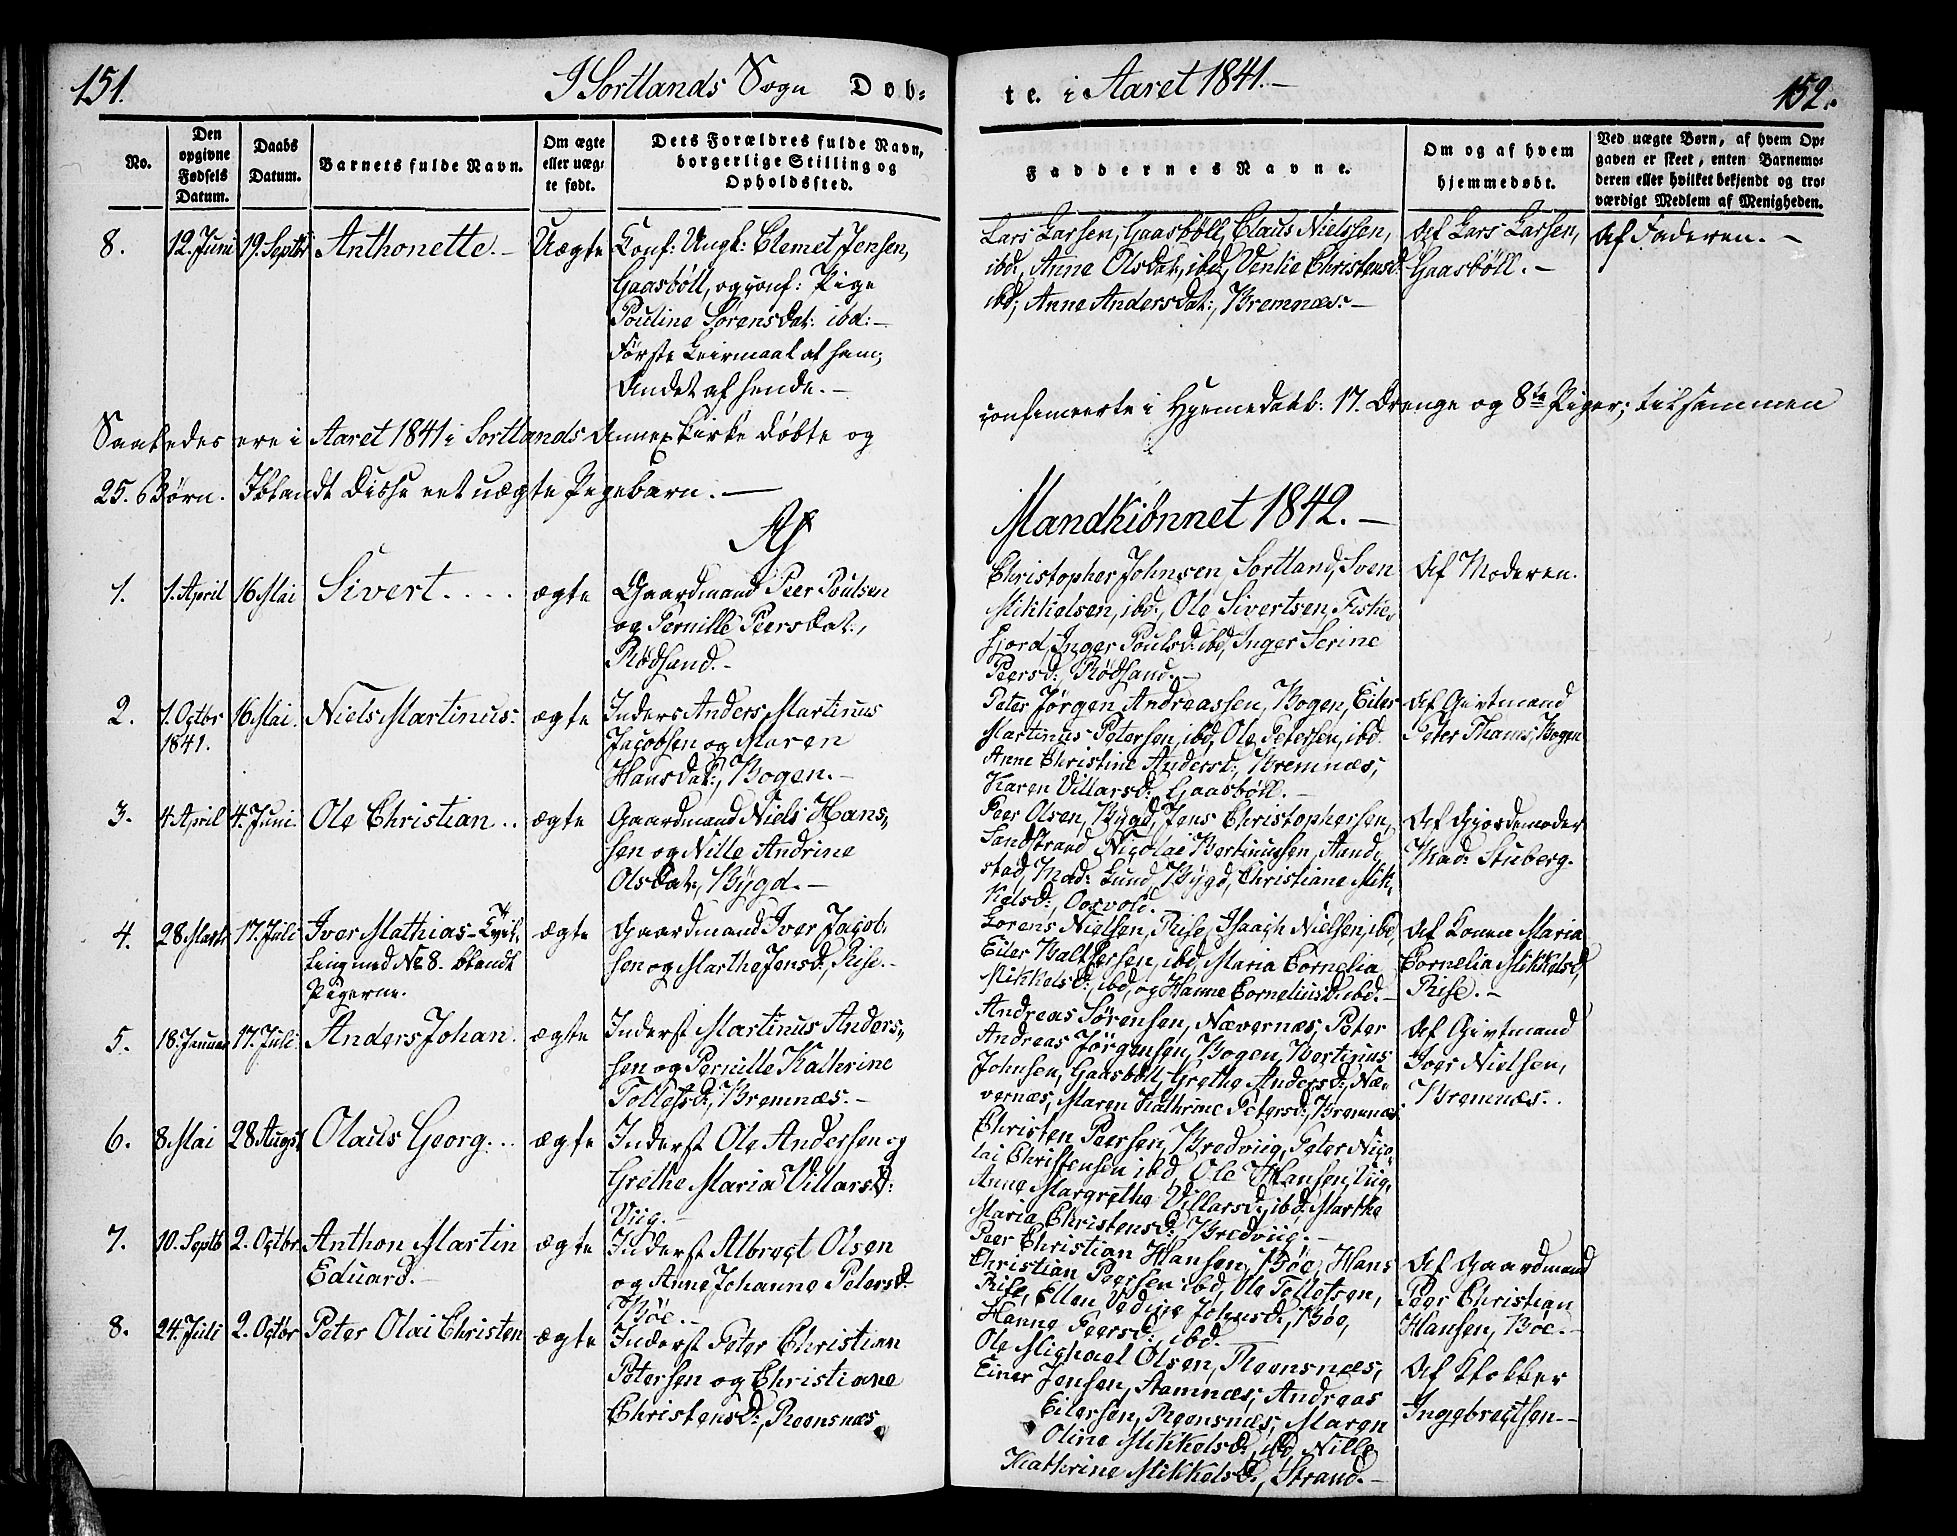 151.
I Sortlands Sogn Døb-
te. i Aaret 1841.—
152.
No.
Den opgivne Fødsels Datum.
Daabs Datum.
Barnets fulde Navn.
Om ægte eller uæg- te født.
Dets Forældres fulde Navn, borgerlige Stilling og Opholdssted.
Faddernes Navne.
Om og af hvem hjemmedøbt.
Ved uægte Børn, af hvem Op- gaven er skeet, enten Barnemo- deren eller hvilket bekjendt og tro- værdigt Medlem af Menigheden.
8. 12. Juni 19. Septbr Anthonette.— Uægte
Konf: Ungk: Clemet Jensen,
Gaasböll, og conf: Pige
Pouline Sørensdat: ibd:—
Første Leiermaal af ham;
Andet af hende.—
Lars Larsen, Gaasböll, Claus Nielsen,
ibd, Anne Olsdat:, ibd, Venkie Christensd:
ibd; Anne Andersdat:, Bremnæs.—
Af Lars Larsen,
Gaasböll.—
Af Faderen.—
Saaledes ere i Aaret 1841 i Sortlands Annexkirke døbte og
confirmerte i Hjemedaab: 17. Drenge og 8te Piger; tilsammen
25. Børn. Iblandt disse eet uægte Pigebarn.—
Af
Mandkiønnet 1842.—
1. 1. April 16 Mai Sivert.... ægte
Gaardmand Peer Poulsen
og Pernille Peersdat:,
Rödsand.—
Christopher Johnsen, Sortland, Sven
Mikkelsen, ibd:, Ole Sivertsen, Fiske-
fjord, Inger Poulsd: ibd, Inger Serine
Peersd:, Rödsand.—
Af Moderen.
2. 1. Octbr 1841. 16 Mai. Niels Martinus: ægte
Inders Anders Martinus
Jacobsen og Maren
Hansdat:, Bogen.—
Peter Jørgen Andreassen, Bogen, Eiler
Martinus Petersen, ibd, Ole Petersen, ibd.
Anne Christine Andersd:, Bremnæs,
Karen Villarsd:, Gaasböll.—
Af Givtmand
Peter Thams, Bogen
3. 4 April 4. Juni. Ole Christian.. ægte
Gaardmand Niels Han-
sen og Nille Andrine
Olsdat:, Bygd.—
Peer Olsen, Bygd, Jens Christophersen,
Sandstrand Nicolai Bertinussen, Aand-
stad, Mad: Lund, Bygd, Christiane Mik-
kelsd:, Osvold.
Af Gjordemoder
Mad: Stuberg.
4. 28 Marts 17. Juli Iver Mathias— Tvil-
ling med No 8. blandt
Pigerne.
ægte
Gaardmand Iver Jacob-
sen og Marthe Jensd:, Rise.—
Lorens Nielsen, Rise, Isaach Nielsen, ibd,
Eiler Baltzersen, ibd, Maria Cornelia
Mikkelsd:, ibd, og Hanne Corneliusd: ibd.—
Af Konen Maria
Cornelia Mikkelsd,
Rise.—
5. 18. Januar 17. Juli. Anders Johan. ægte
Inderst Martinus Anders-
sen og Pernille Kathrine
Tollefsd:, Bremnæs.—
Andreas Sørensen, Nævernæs, Peter
Andreas Jørgensen, Bogen, Bertinus
Johnsen, Gaasböll, Grethe Andersd:, Næ-
vernæs, Maren Kathrine Petersd:, Bremnæs
Af Givtmand
Iver Nielsen,
Bremnæs..
6. 8. Mai 28 Augst Olaus Georg... ægte
Inderst Ole Andersen og
Grethe Maria Villarsd:
Viig.—
Christen Peersen, Bredviig, Peter Nico-
lai Christensen ibd, Ole Hansen, Viig,
Anne Margrethe Villarsd:, ibd: Marthe
Maria Christensd:, Bredviig.—
7. 10. Septb 2. Octbr. Anthon Martin
Eduard.—
ægte
Inderst Albregt Olsen
og Anne Johanne Petersd:
Böe.—
Peer Christian Hansen, Böe, Hans
Christian Peersen ibd, Ole Tollefsen,
Rise, Ellen Vedine Johnsd:, Böe,
Hanne Peersd:, ibd.—
Af Gaardmand
Peer Christian
Hansen, Böe.—
8. 24. Juli 2. Octbr Peter Olai Christen ægte
Inderst Peter Christian
Petersen og Christiane
Christensd:, Reensnæs
Ole Michael Olsen, Reensnæs,
Einer Jensen, Aamnæs, Andreas
Eilersen, Reensnæs, Maren
Oline Mikkelsd:, ibd, Nille
Kathrine Mikkelsd:, Strand.—
Af Klokker
Ingebregtsen.—